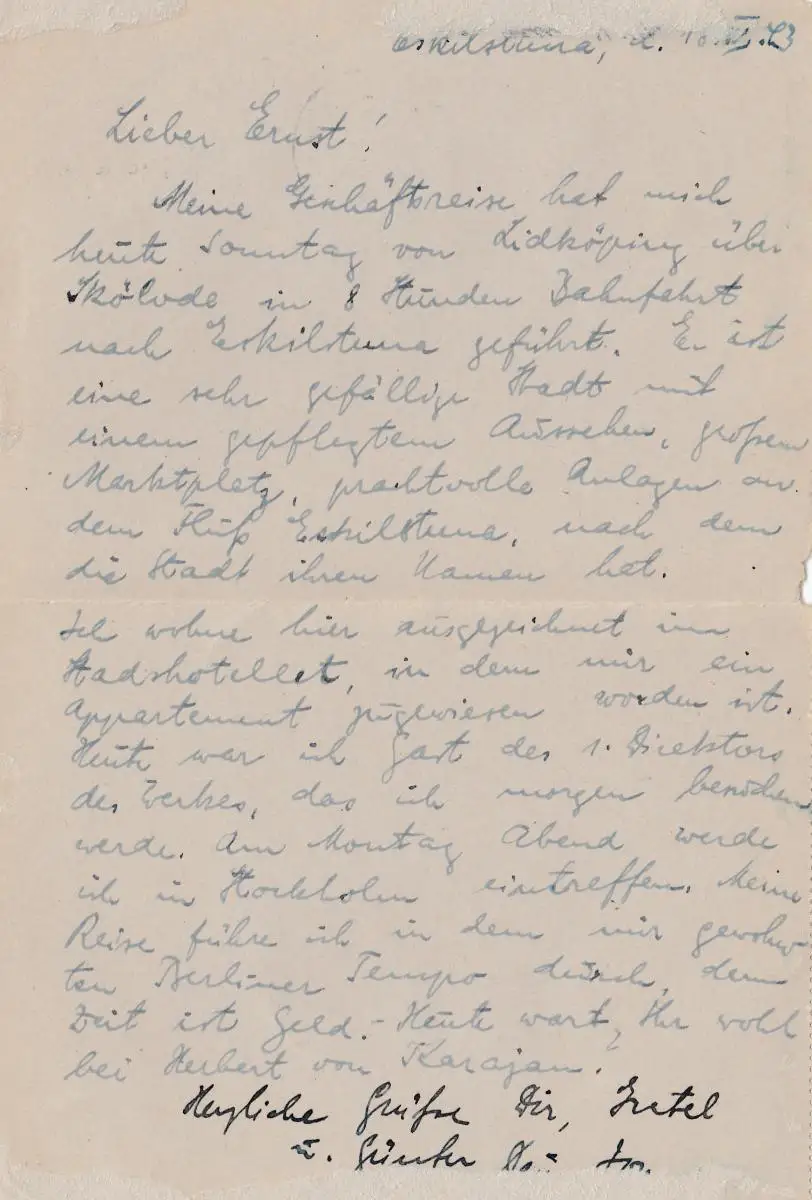 Eskilstuna, d.
Lieber Ernst!
Meine Geschäftsreise hat mich
heute Sonntag von Lidköping über
Skölvde in 8 Stunden Bahnfahrt
nach Eskilstuna geführt. Es ist
eine sehr gefällige Stadt mit
einem gepflegtem Aussehen, großem
Marktplatz, prachtvolle Anlagen an
dem Fluß Eskilstuna, nach dem
die Stadt ihren Namen hat.
Ich wohne hier ausgezeichnet im
Stadshotellet, in dem mir ein
Appartement zugewiesen worden ist.
Heute war ich Gast des 1. Direktors
des Werkes, das ich morgen besuchen
werde. Am Montag Abend werde
ich in Stockholm eintreffen. Meine
Reise führe ich in dem mir gewohn-
ten Berliner Tempo durch, denn
Zeit ist Geld. - Heute wart Ihr wohl
bei Herbert von Karajan.
Herzliche Grüße Dir,
u. Günter